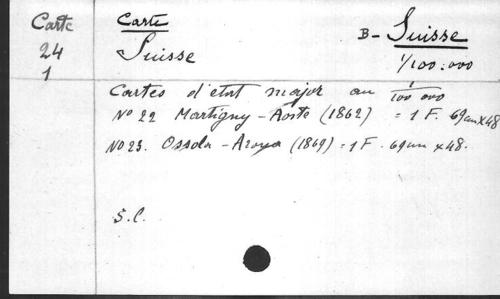 Carte
24
1
Carte
Suisse
B - Suisse
1/100.000
Cartes d'état major au 1/100 000
No 22 Martigny - Aoste (1862) = 1 F. 69cm x 48
No 23. Ossola - (1869) = 1 F. 69cm x 48.
S.C.